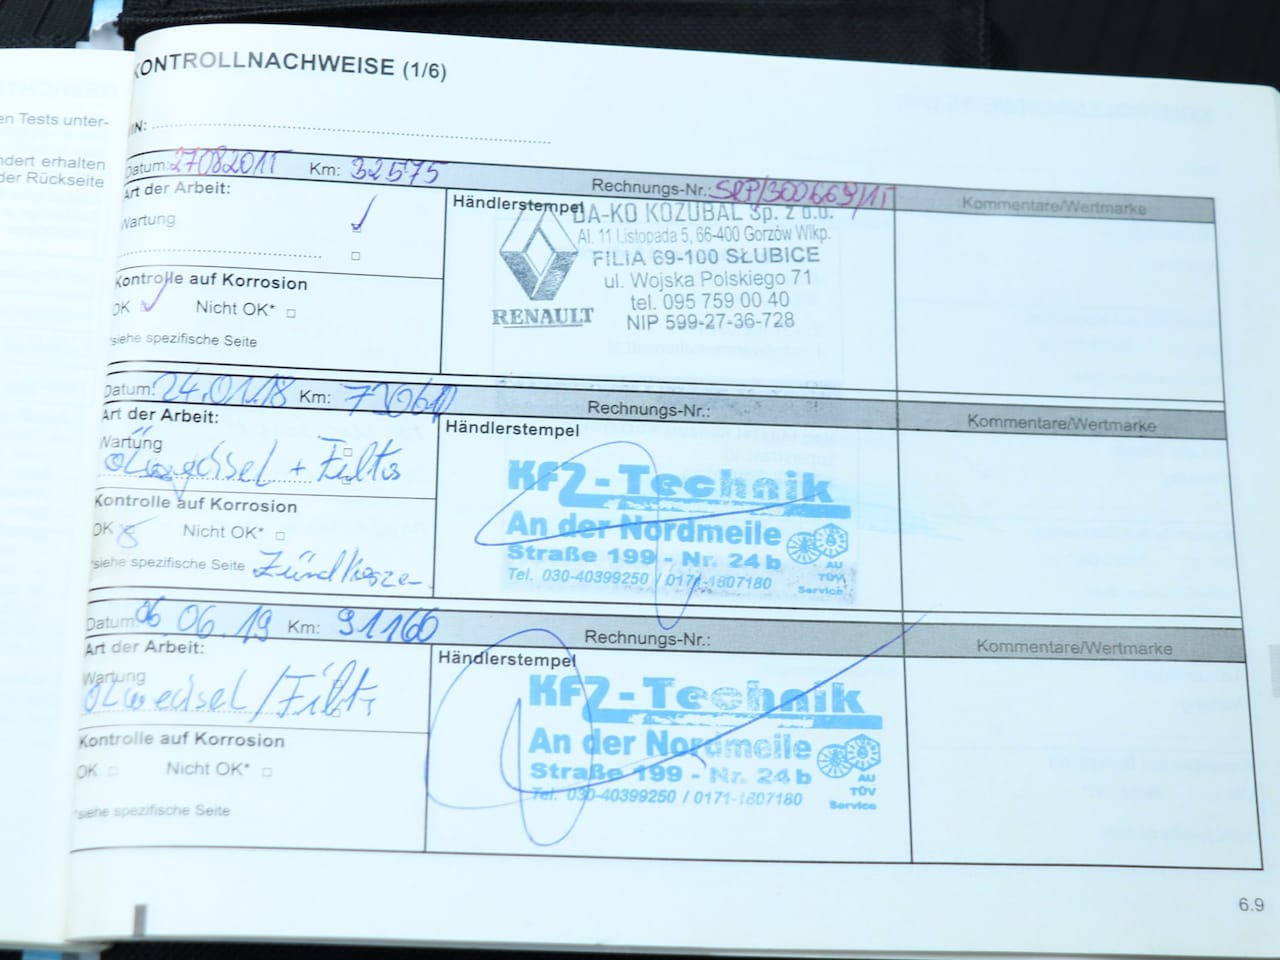 en Tests unter-
ndert erhalten
der Rückseite
KONTROLLNACHWEISE (1/6)
VIN:
Datum: 27082015 Km: 32575 Rechnungs-Nr.: Kommentare/Wertmarke
Art der Arbeit:
Wartung
Kontrolle auf Korrosion
OK Nicht OK*
*siehe spezifische Seite
Händlerstempel
DA-KO KOZUBAL Sp. z o.o.
Al. 11 Listopada 5, 66-400 Gorzów Wlkp.
FILIA 69-100 SŁUBICE
ul. Wojska Polskiego 71
tel. 095 759 00 40
NIP 599-27-36-728
RENAULT
Datum: 24.01.18 Km: Rechnungs-Nr.: Kommentare/Wertmarke
Art der Arbeit:
Wartung
Ölwechsel + Filter
Kontrolle auf Korrosion
OK Nicht OK*
*siehe spezifische Seite Zündkerzen
Händlerstempel
Kfz-Technik
An der Nordmeile
Straße 199 - Nr. 24 b
Tel. 030-40399250 / 0171-1607180
AU
TÜV
Service
Datum: 06 06.19 Km: 91160 Rechnungs-Nr.: Kommentare/Wertmarke
Art der Arbeit:
Wartung
Ölwechsel/Filter
Kontrolle auf Korrosion
OK Nicht OK*
*siehe spezifische Seite
Händlerstempel
Kfz-Technik
An der Nordmeile
Straße 199 - Nr. 24 b
Tel. 030-40399250 / 0171-1607180
AU
TÜV
Service
6.9